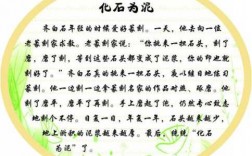 化石为泥
齐白石年轻的时候爱好篆刻。一天，他去向一位
老篆刻家求教。老篆刻家说：“你挑来一担石头，刻了
磨，磨了刻，等到这些石头都变成了泥浆，你的印也就
刻好了。”齐白石真的挑来一担石头，夜以继日地练习
篆刻。他一边刻一边拿篆刻名家的作品对照，琢磨。他
刻了磨平，磨平了再刻。手上磨起了泡，仍然专心致志
地刻个不停。日复一日，年复一年，石头越来越少，
地上淤积的泥浆越来越厚。最后，统统“化石
为泥”了。